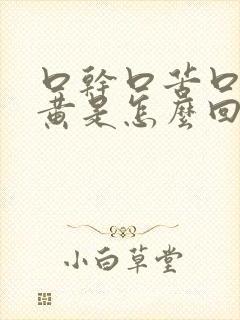 口幹口苦口
黄是怎麼回
小白草堂